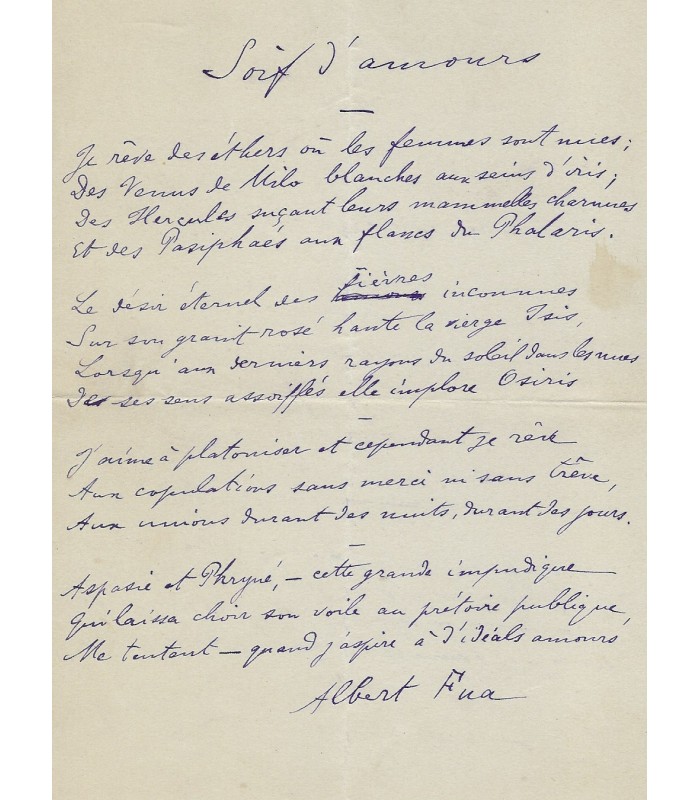 Soif d'amours
Je rêve des éthers où les femmes sont nues;
Des Venus de Milo blanches aux seins d'iris;
Des Hercules suçant leurs mammelles charnues
Et des Pasiphaés aux flancs du Phalaris.
Le désir éternel des fièvres inconnues
Sur son granit rosé hante la vierge Isis,
Lorsqu'aux derniers rayons du soleil dans les nues
De ses sens assoiffés elle implore Osiris
J'aime à platoniser et cependant je rêve
Aux copulations sans merci ni sans trêve,
Aux unions durant des nuits, durant des jours.
Aspasie et Phryné, — cette grande impudique
Qui laissa choir son voile au prétoire publique,
Me tentent — quand j'aspire à d'idéals amours
Albert Fua